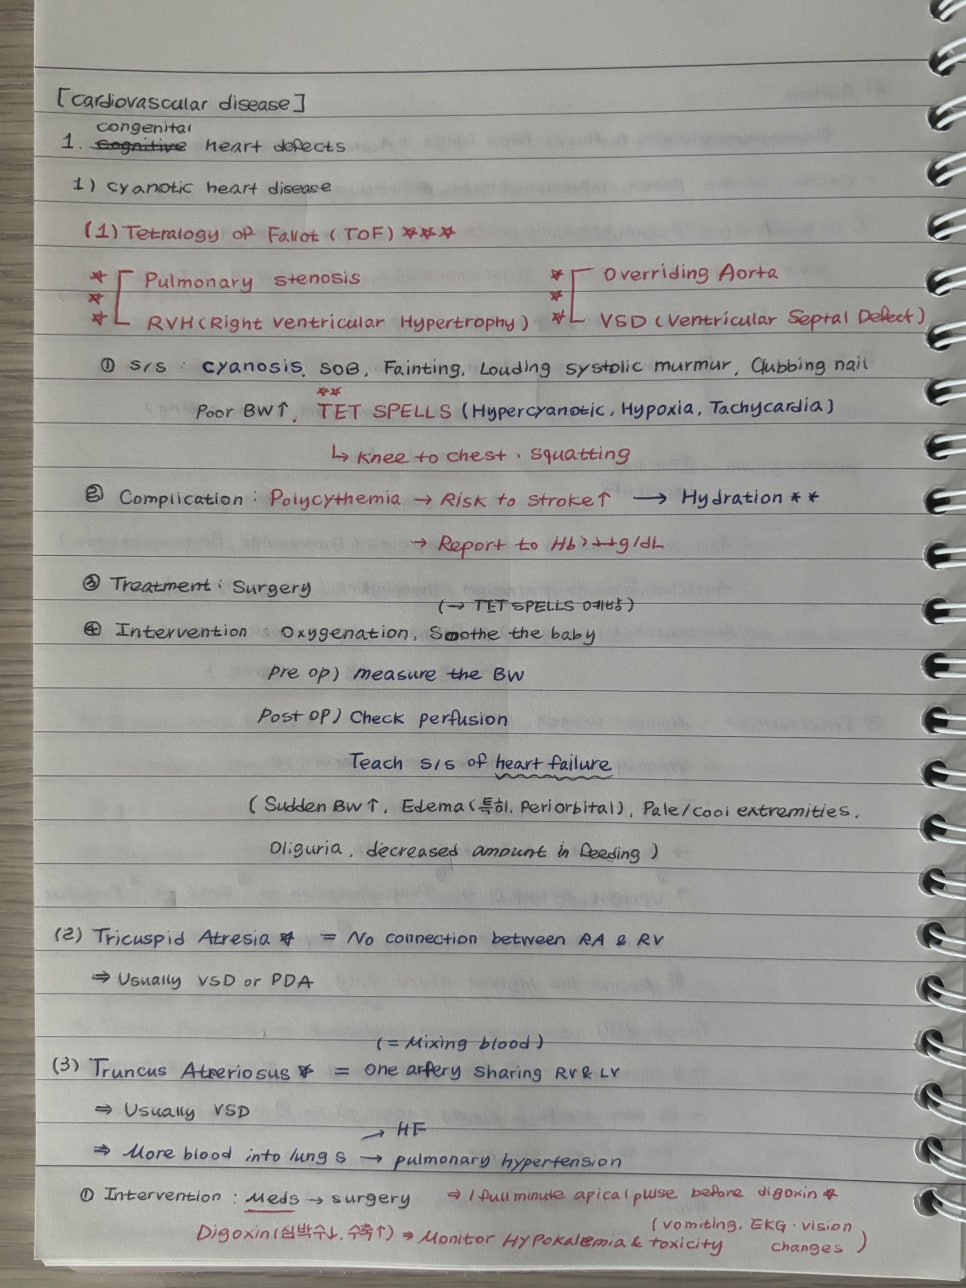 [cardiovascular disease]
congenital
1. cognitive heart defects
1) cyanotic heart disease
(1) Tetralogy of Fallot (TOF) ☆☆☆
☆ Pulmonary stenosis ☆ Overriding Aorta
☆ ☆
☆ RVH (Right ventricular Hypertrophy) ☆ VSD (Ventricular Septal Defect)
① s/s : cyanosis, SOB, Fainting, Louding systolic murmur, Clubbing nail
☆☆
Poor BW↑, TET SPELLS (Hypercyanotic, Hypoxia, Tachycardia)
↳ Knee to chest · squatting
② Complication : Polycythemia → Risk to stroke↑ → Hydration **
→ Report to Hb > g/dL
③ Treatment : Surgery
(→ TET SPELLS 예방)
④ Intervention : Oxygenation, Soothe the baby
Pre op) measure the BW
Post op) Check perfusion
Teach s/s of heart failure
(Sudden BW↑, Edema (특히, Periorbital), Pale/cool extremities,
Oliguria, decreased amount in feeding)
(2) Tricuspid Atresia ☆ = No connection between RA & RV
⇒ Usually VSD or PDA
(= Mixing blood)
(3) Truncus Atreriosus ☆ = One artery sharing RV & LV
⇒ Usually VSD
→ HF
⇒ More blood into lungs → pulmonary hypertension
① Intervention : Meds → surgery ⇒ 1 full minute apical pulse before digoxin ☆
Digoxin (심박수↓, 수축↑) ⇒ Monitor Hypokalemia & toxicity (vomiting, EKG · vision changes)